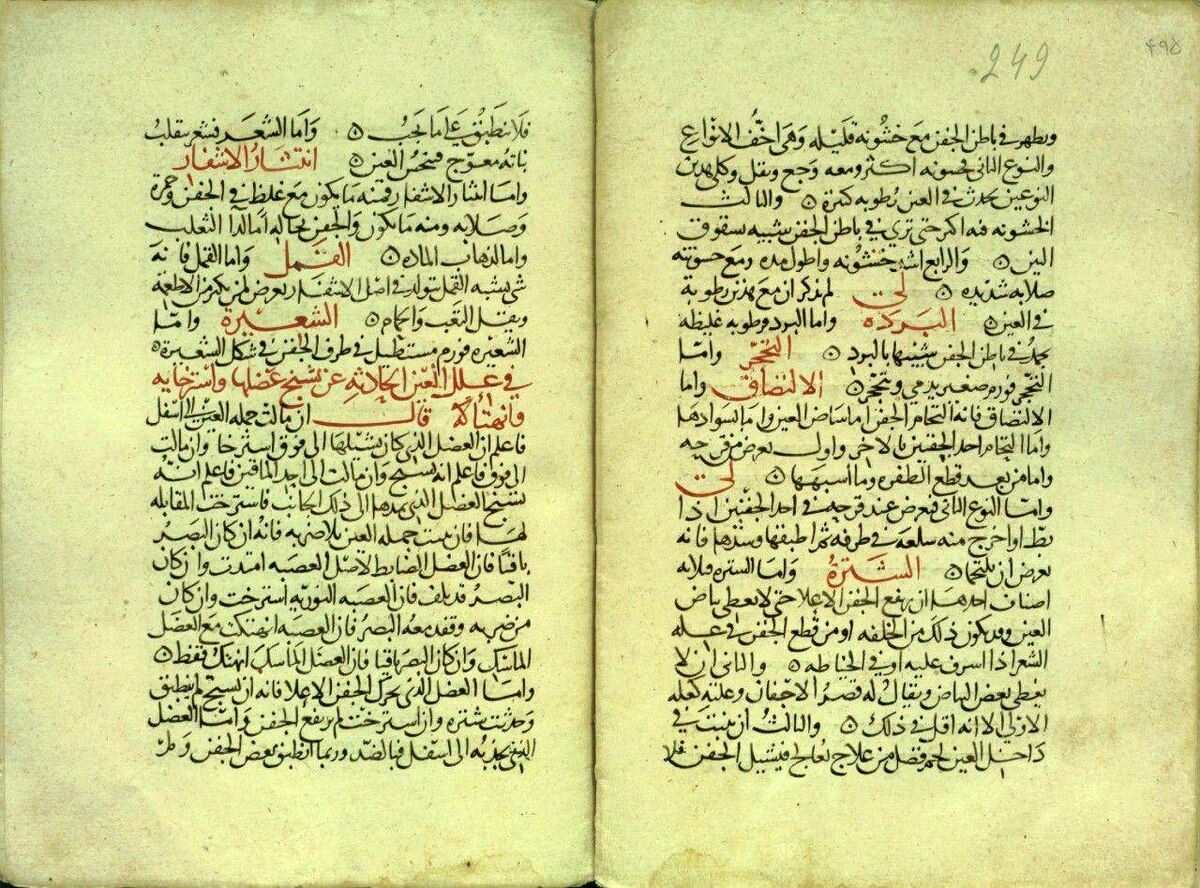 249
۴۹۵
ويظهر في باطن الجفن مع خشونه قليله وهي اخف الانواع
والنوع الثاني خشونه اكثر ومعه وجع وثقل وكلى هذين
النوعين يحدث في العين رطوبه كثيرة ٥ والثالث
الخشونه فيه اكثر حتى ترى في باطن الجفن شبيه بشقوق
التين ٥ والرابع اشد خشونه واطول مده ومع خشونته
صلابه شديده ٥ لي لم يذكر ان مع هذين رطوبة
في العين ٥ البرده واما البرد رطوبه غليظه
يجمد في باطن الجفن شبيها بالبرد ٥ التحجر واما
التحجر فورم صغير يدمي ويتحجر ٥ الالتصاق واما
الالتصاق فانه التحام الجفن اما ببياض العين واما بسوادها
واما التحام احد الجفنين بالاخر والاول يعرض من قرحه
واما من بعد قطع الظفره وما اشبهها ٥ لي
واما النوع الثاني فيعرض عند قرحه في احد الجفنين اذا
بط او اخرج منه سلعه في طرفه ثم اطبقها وشدها فانه
يعرض ان يلتحما ٥ الشترة واما الشتره فثلاثه
اصناف احدها ان يرفع الجفن الاعلا حتى لا يغطى بياض
العين وقد يكون ذلك من الخلقه او من قطع الجفن في عله
الشعر اذا اسرف عليه او في الخياطه ٥ والثاني ان لا
يغطى بعض البياض ويقال له قصر الاجفان وعلته كعله
الاولى الا انه اقل في ذلك ٥ والثالث ان ينبت في
داخل العين لحم فضل من علاج يعالج فيشيل الجفن فلا
فلا ينطبق على ما يجب ٥ واما الشعر فشعر ينقلب
نباته معوج فينخس العين ٥ انتثار الاشفار
واما انتثار الاشفار فمنه ما يكون مع غلظ في الجفن وحمرة
وصلابه ومنه ما يكون والجفن بحاله اما لدا الثعلب
واما لذهاب الماده ٥ القمل واما القمل فانه
شي يشبه القمل يتولد في اصل الاشفار يعرض لمن يكثر من الاطعمه
ويقل التعب والحمام ٥ الشعيرة واما
الشعيره فورم مستطيل في طرف الجفن في شكل الشعيرة ٥
في علل العين الحادثه عن تشنج عضلها واسترخايه
وانهتاكه قال ان مالت جمله العين الى اسفل
فاعلم ان العضل الذي كان يشيلها الى فوق استرخا وان مالت
الى فوق فاعلم انه تشنج وان مالت الى احد الماقين فاعلم انه
تشنج العضل الذي يمدها الى ذلك الجانب فاسترخت المقابله
لها فان نتت جمله العين بلا ضربه فانه ان كان البصر
باقيا فان العضل الضابط لاصل العصبه امتدت وان كان
البصر قد تلف فان العصبه النوريه استرخت وان كان
من ضربه وفقد معه البصر فان العصبه انهتكت مع العضل
الماسك وان كان البصر باقيا فان العضل الماسك انهتك فقط ٥
واما العضل الذي يحرك الجفن الاعلا فانه ان تشنج لم ينطبق
وحدثت شتره وان استرخت لم يرتفع الجفن واما العضل
الذي يجذبه الى اسفل فبالضد وربما انطبق بعض الجفن وطر